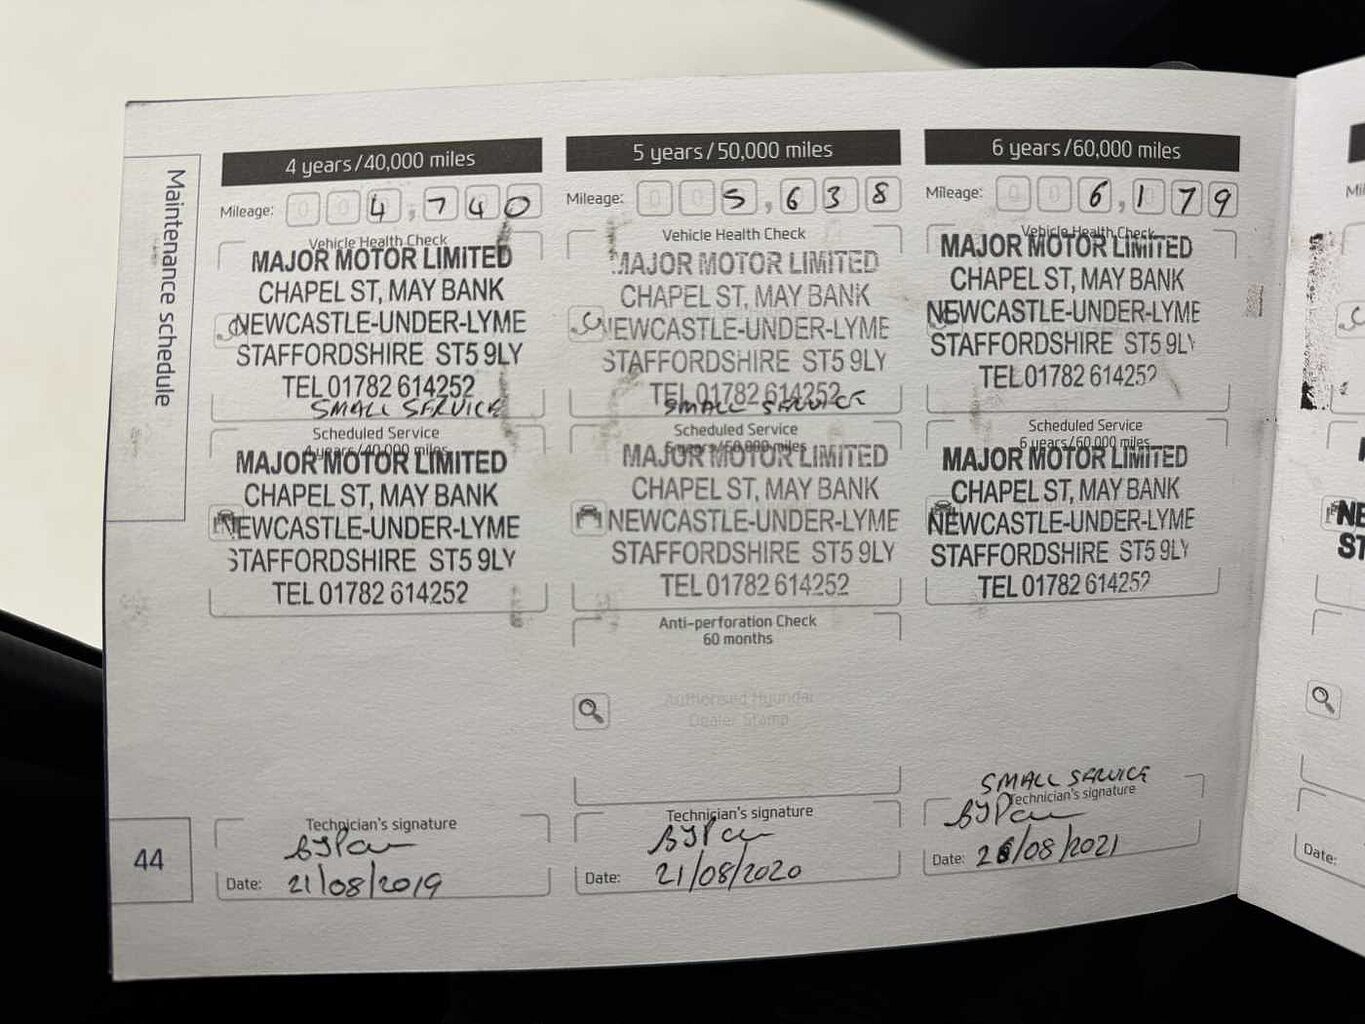 Maintenance schedule
4 years/40,000 miles
Mileage: 0 0 4,740
Vehicle Health Check
MAJOR MOTOR LIMITED
CHAPEL ST, MAY BANK
NEWCASTLE-UNDER-LYME
STAFFORDSHIRE ST5 9LY
TEL 01782 614252
SMALL SERVICE
Scheduled Service
4 years/40,000 miles
MAJOR MOTOR LIMITED
CHAPEL ST, MAY BANK
NEWCASTLE-UNDER-LYME
STAFFORDSHIRE ST5 9LY
TEL 01782 614252
Technician's signature
Date: 21/08/2019
5 years/50,000 miles
Mileage: 0 0 5,638
Vehicle Health Check
MAJOR MOTOR LIMITED
CHAPEL ST, MAY BANK
NEWCASTLE-UNDER-LYME
STAFFORDSHIRE ST5 9LY
TEL 01782 614252
SMALL SERVICE
Scheduled Service
5 years/50,000 miles
MAJOR MOTOR LIMITED
CHAPEL ST, MAY BANK
NEWCASTLE-UNDER-LYME
STAFFORDSHIRE ST5 9LY
TEL 01782 614252
Anti-perforation Check
60 months
Authorised Hyundai
Dealer Stamp
Technician's signature
Date: 21/08/2020
6 years/60,000 miles
Mileage: 0 0 6,179
Vehicle Health Check
MAJOR MOTOR LIMITED
CHAPEL ST, MAY BANK
NEWCASTLE-UNDER-LYME
STAFFORDSHIRE ST5 9LY
TEL 01782 614252
Scheduled Service
6 years/60,000 miles
MAJOR MOTOR LIMITED
CHAPEL ST, MAY BANK
NEWCASTLE-UNDER-LYME
STAFFORDSHIRE ST5 9LY
TEL 01782 614252
SMALL SERVICE
Technician's signature
Date: /08/2021
44
Mi
NE
ST
Date: